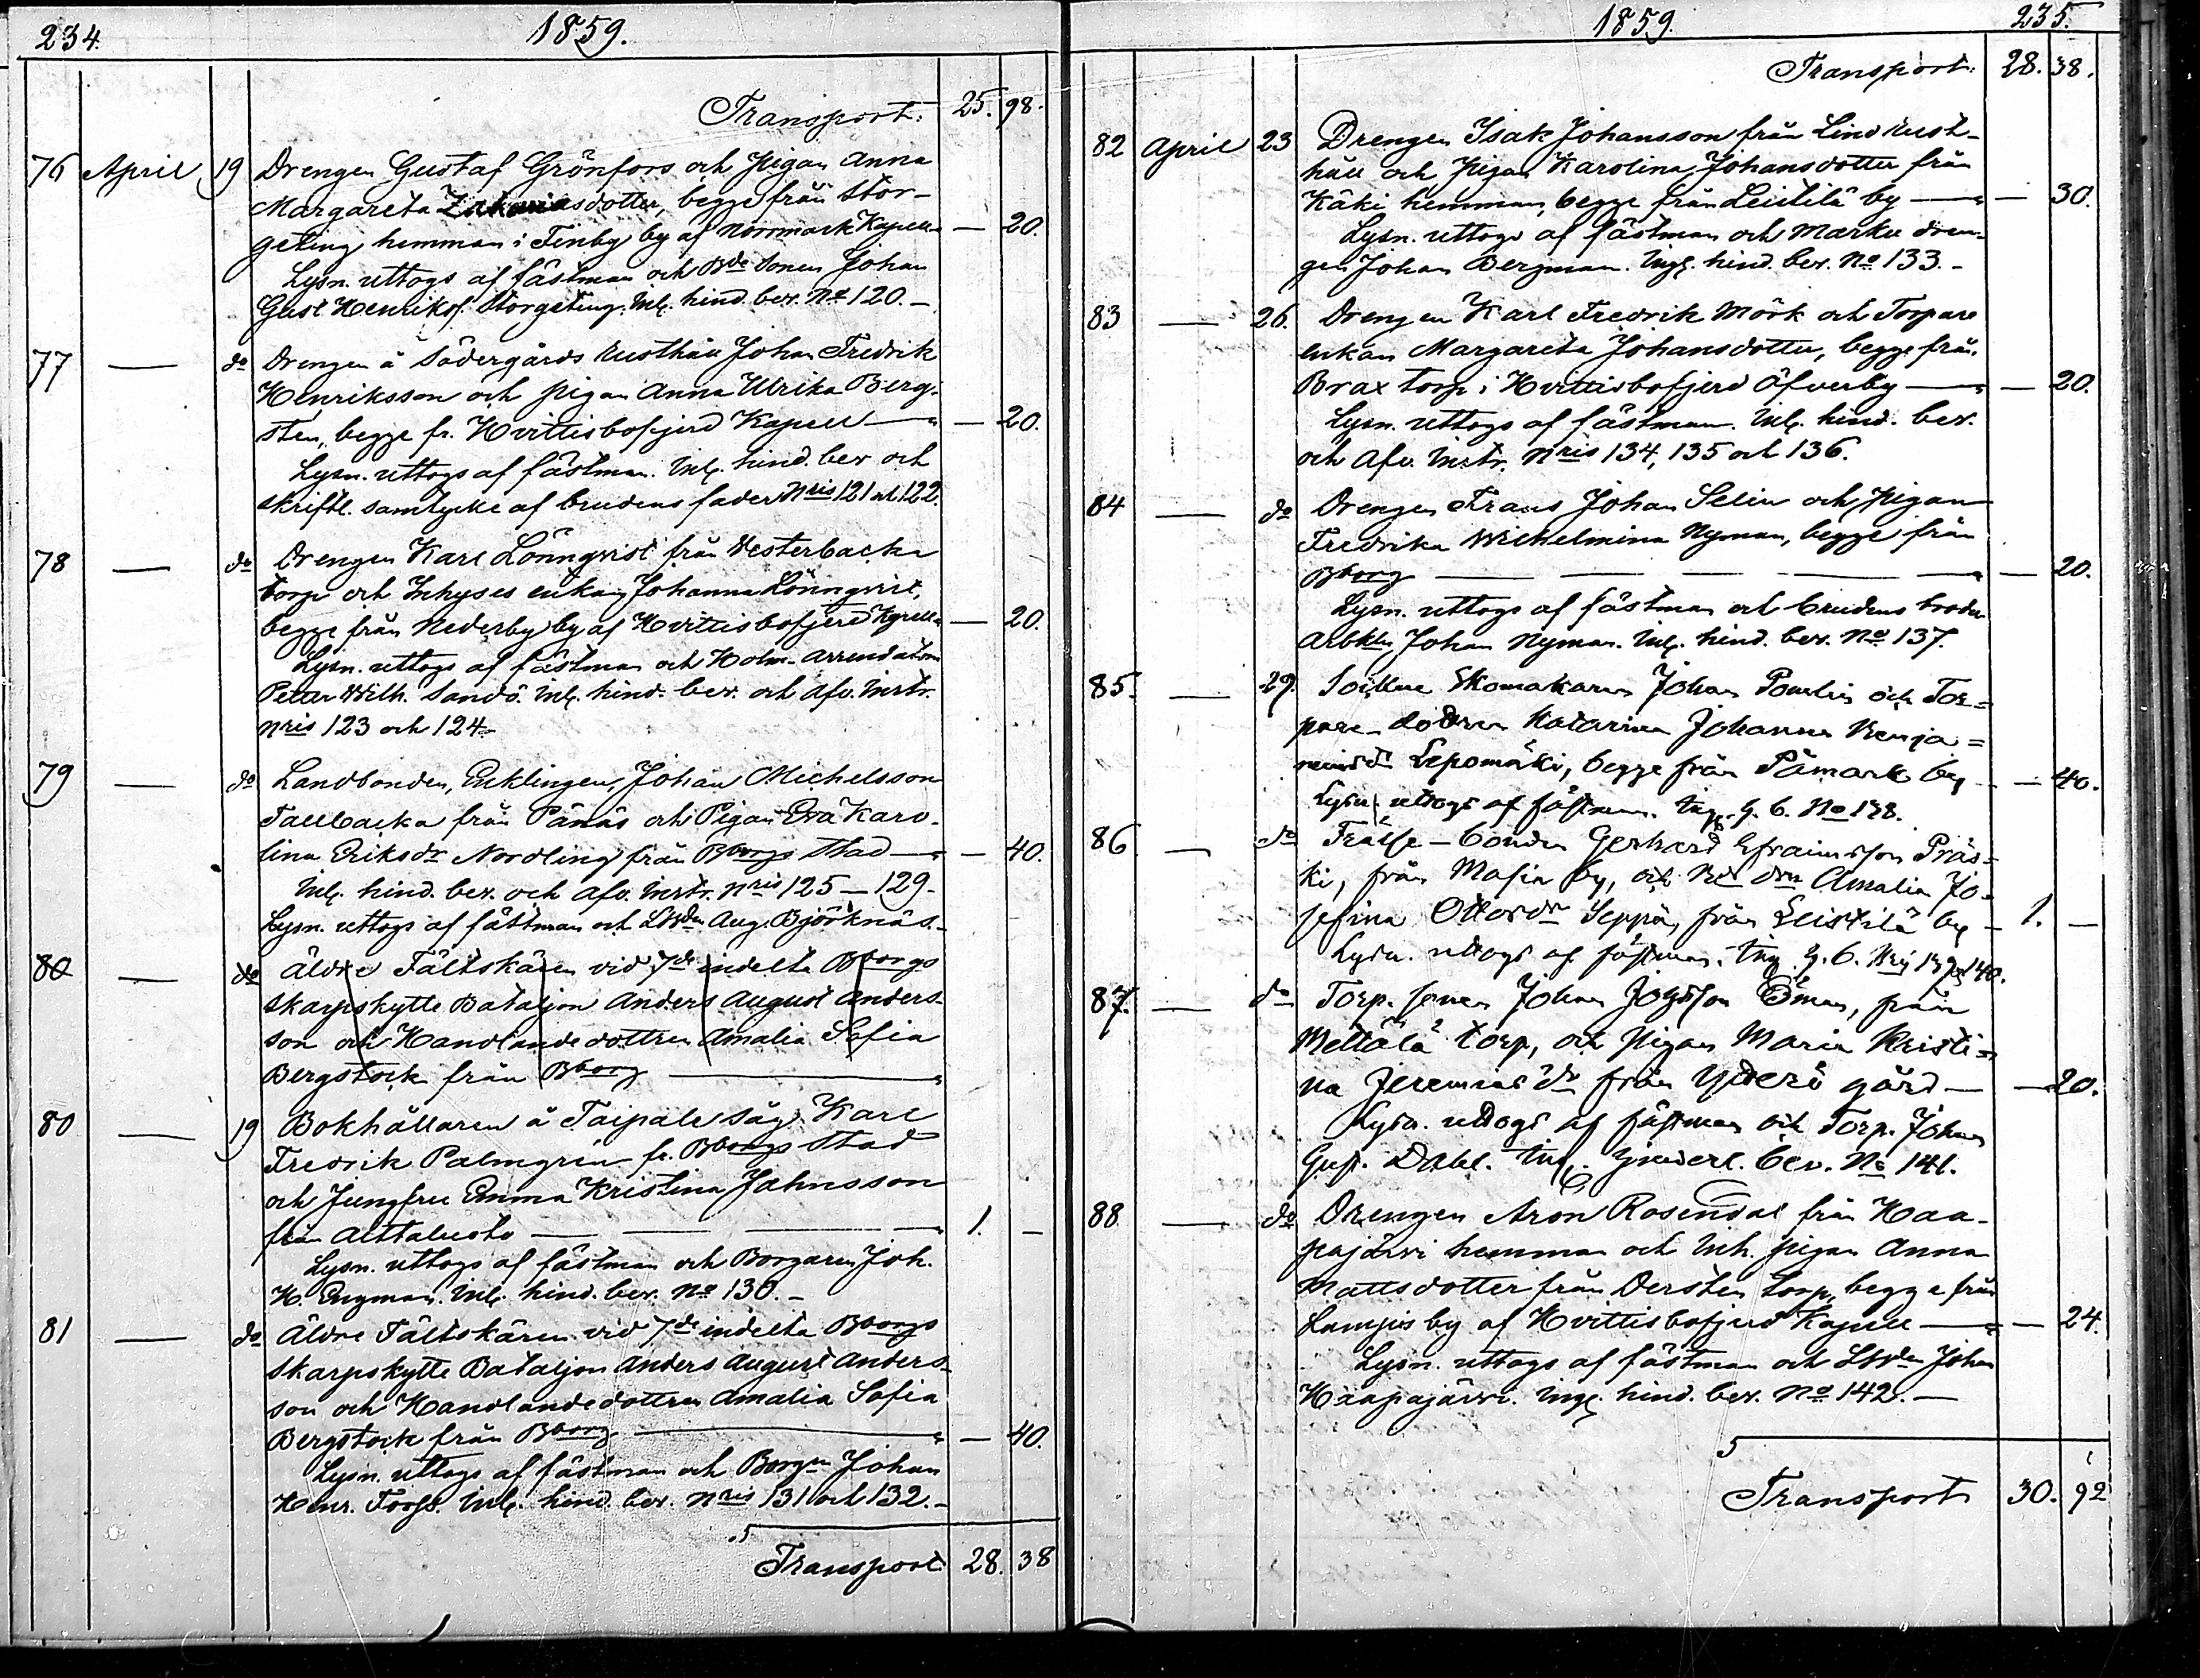 234.
1859.
Transport. 25. 98.
76 April 19 Drengen Gustaf Grönfors och pigan Anna
Margareta Zakariasdotter, begge från Stor-
geteng hemman i Finby by af Norrmark Kapell — 20.
Lysn. uttogs af fästman och Bde Sonen Johan
Gust Henrikss. Storgeteng. Inl. hind. bev. No 120. –
77 — do Drengen å Södergårds Rusthåll Johan Fredrik
Henriksson och pigan Anna Ulrika Berg-
sten, begge fr. Hvittisbofjerd Kapell — — 20.
Lysn. uttogs af fästman. Inl. hind. bev och
skriftl. samtycke af brudens fader Nris 121 och 122.
78 — do Drengen Karl Lönnqvist från Vesterbacka
torp och Inhyses enkan Johanna Lönnqvist,
begge från Nederby by af Hvittisbofjerd Kapell — 20.
Lysn. uttogs af fästman och Holm. Arrendatorn
Petter Wilh. Sandö. Inl. hind. bev. och afv. instr.
Nris 123 och 124 –
79 — do Landbonden, Enklingen, Johan Michelsson
Tallbacka från Pånäs och Pigan Eva Karo-
lina Eriksdr Nordling från Bborgs Stad — — 40.
Inl. hind. bev. och afv. instr. Nris 125 – 129.
Lysn. uttogs af fästman och Aug. Björknäs. –
80 — do Äldre Fältskären vid 7de indelta Bborgs
skarpskytte Bataljon Anders August Anders-
son och Handlandedottren Amalia Sofia
Bergstock från Bborg —
80 — 19 Bokhållaren å Taipale såg Karl
Fredrik Palmgrén fr. Bborgs Stad
och Jungfru Emma Kristina Jahnsson
från Aittaluoto — — — 1. —
Lysn. uttogs af fästman och Borgaren Joh.
H. Engman. Inl. hind. bev. No 130. –
81 — do Äldre Fältskären vid 7de indelta Bborgs
skarpskytte Bataljon Anders August Anders-
son och Handlandedottren Amalia Sofia
Bergstock från Bborg — — 40.
Lysn. uttogs af fästman och Borgn Johan
Henr. Inl. hind. bev. Nris 131 och 132. –
Transport 28. 38
1859.
235.
Transport. 28. 38.
82 April 23 Drengen Isak Johansson från Lind Rust-
håll och pigan Karolina Johansdotter från
Käki hemman, begge från Leistilä by — — 30.
Lysn. uttogs af fästman och Marku dren-
gen Johan Bergman. Ingl. hind. bev. No 133. –
83 — 26. Drengen Karl Fredrik Mörk och Torpare
enkan Margareta Johansdotter, begge från
Brax torp i Hvittisbofjerd Öfverby — — 20.
Lysn. uttogs af fästman. Inl. hind. bev.
och afv. instr. Nris 134, 135 och 136.
84 — do Drengen Frans Johan Selin och pigan
Fredrika Wilhelmina Nyman, begge från
Bborg — — — — 20.
Lysn. uttogs af fästman och brudens broder
Arbkln Johan Nyman. Inl. hind. bev. No 137.
85. — 29. Skomakaren Johan och Tor=
pare-dottren Katarina Johanna Benja=
minsdr Lepomäki, begge från Påmark by — 40.
Lysn. uttogs af fästman. Ing. h. b. No 138.
86 — do Frälse-bonden Gerhard Efraimsson Präs=
ki, från Masia by, och Bde drn Amalia Jo-
sefina Ottosdr Seppä, från Leistilä by — 1. —
Lysn. uttogs af fästman. Ing. h. b. Nris 139, 140.
87. — do Torp. sonen Johan Öman, från
Mettälä torp, och pigan Maria Kristi=
na Jeremiasdr från Ytterö gård — — 20.
Lysn. uttogs af fästman och Torp. Johan
Gust. Dahl. bev. No 141.
88 — do Drengen Aron Rosendal från Haa-
pajärvi hemman och Inh. pigan Anna
Mattsdotter från Dersten torp, begge från
Lampis by af Hvittisbofjerd Kapell — — 24.
Lysn. uttogs af fästman och Johan
Haapajärvi. Ingl. hind. bev. No 142. –
Transport 30. 92